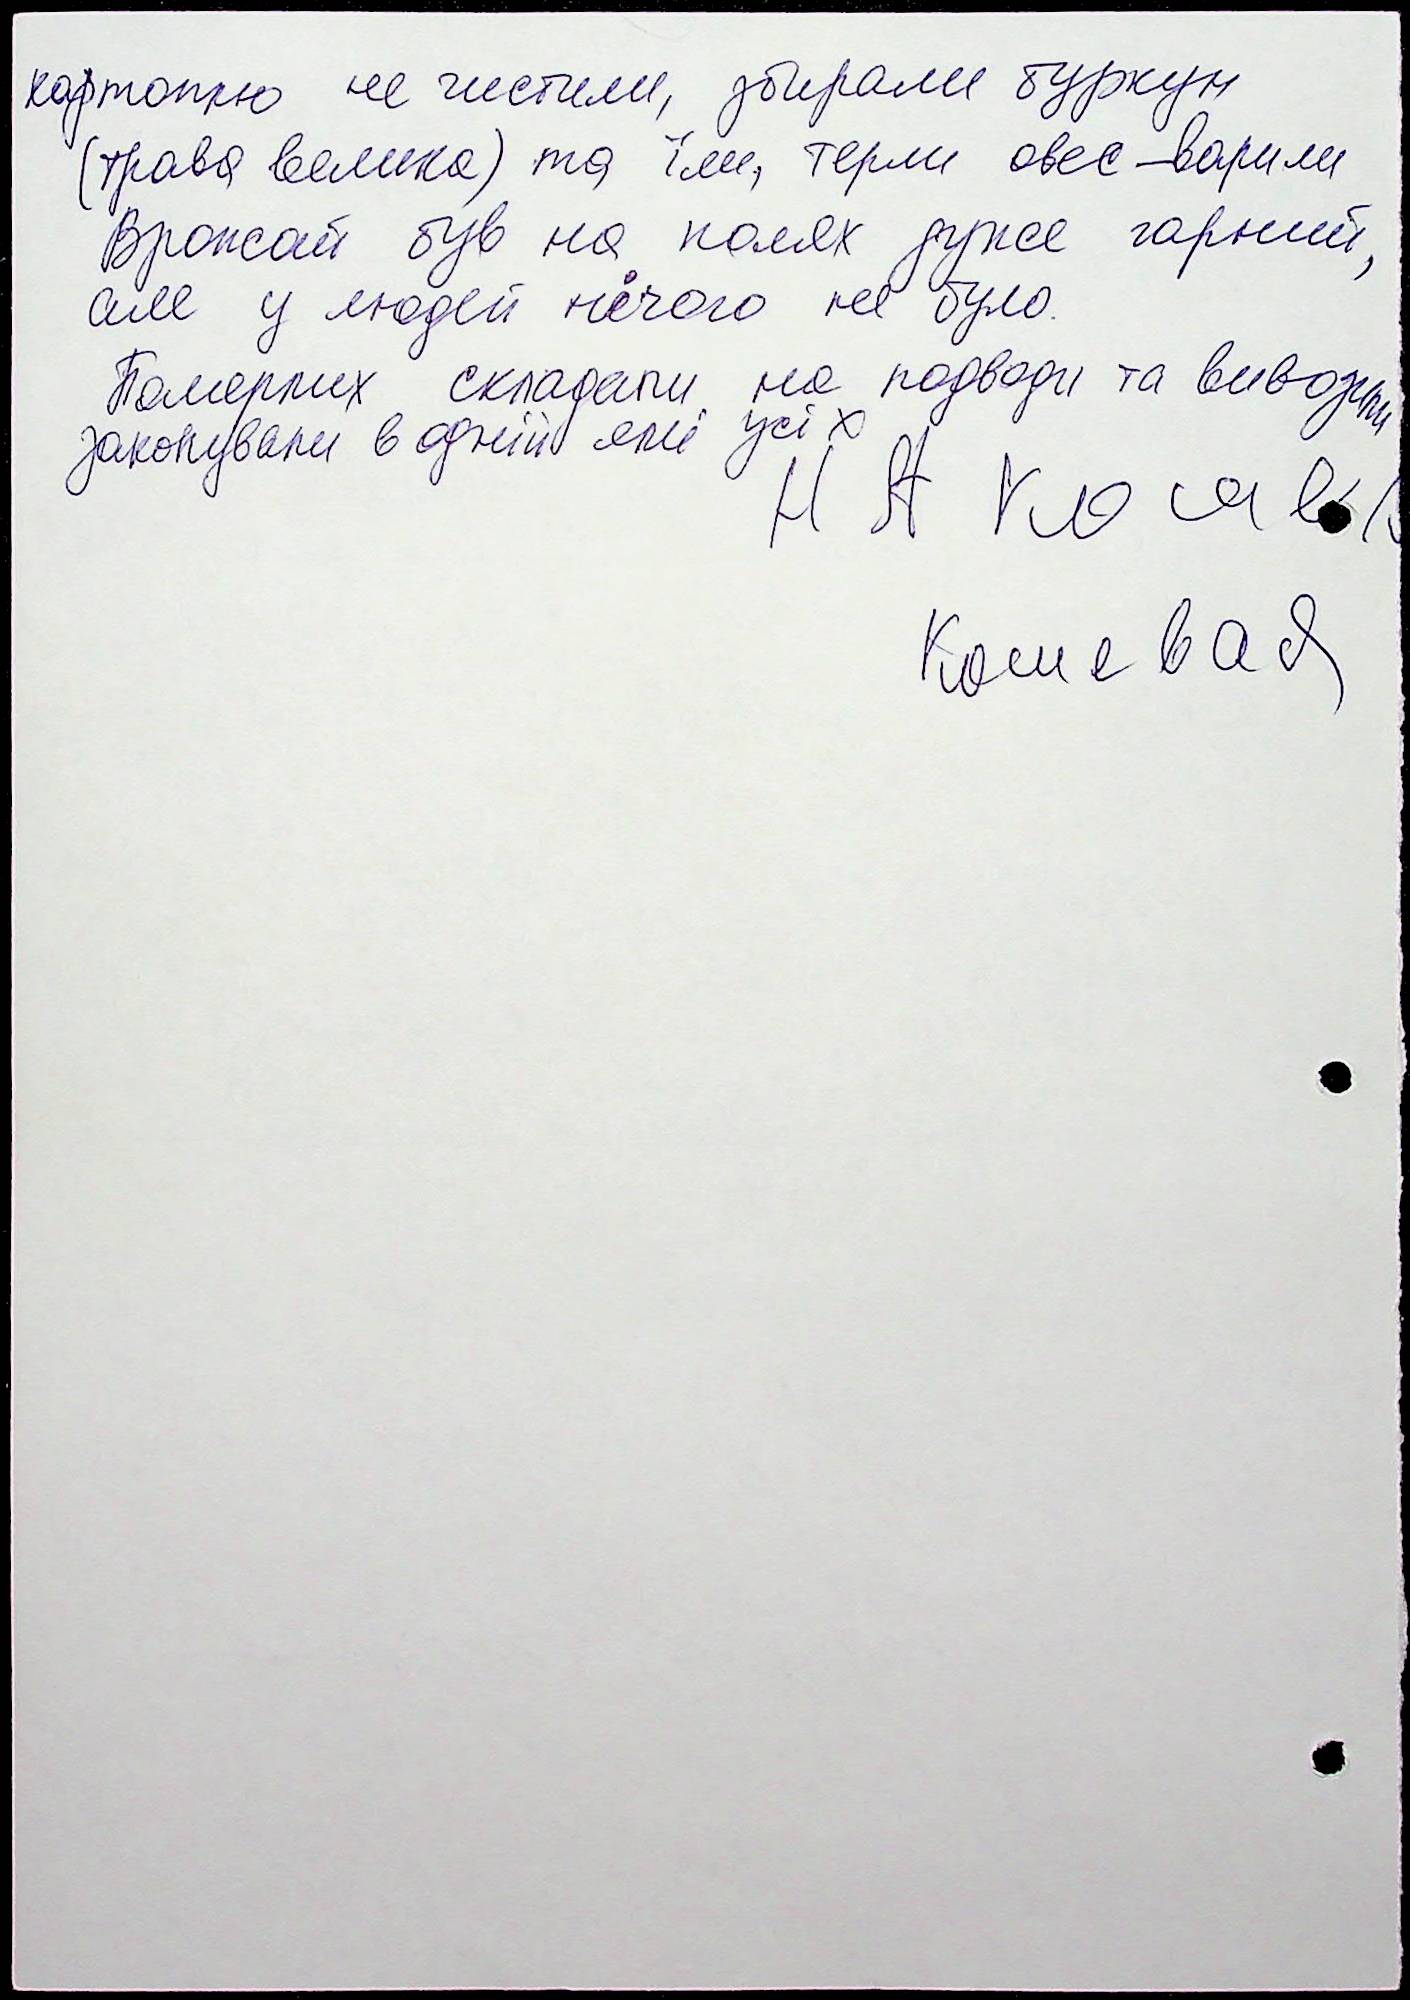 картоплю не чистили, збирали буркун
(трава велика) та їли, терли овес – варили
Врожай був на полях дуже гарний,
але у людей нічого не було.
Померлих складали на подводи та вивозили
закопували в одній ямі усіх
Н А
Кошевая